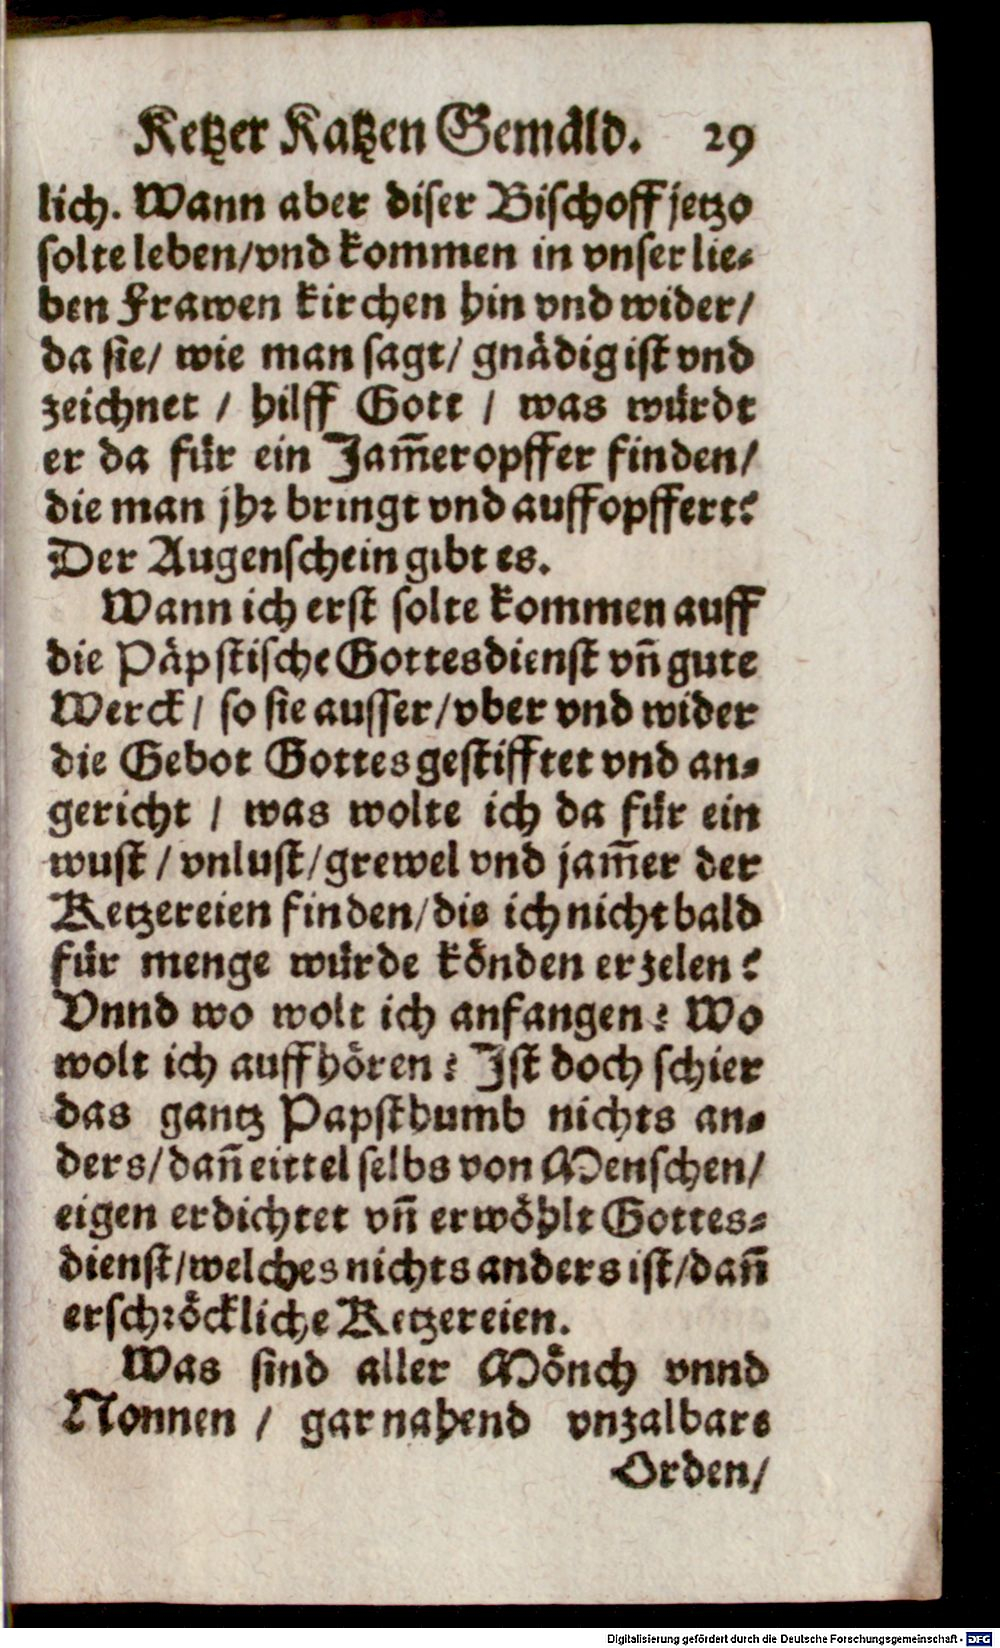 Ketzer Katzen Gemäld. 29
lich. Wann aber diser Bischoff jetzo
solte leben/vnd kommen in vnser lie-
ben Frawen kirchen hin vnd wider/
da sie/ wie man sagt/ gnädig ist vnd
zeichnet / hilff Gott / was würdt
er da für ein Jam̄eropffer finden/
die man jhr bringt vnd auffopffert?
Der Augenschein gibt es.
Wann ich erst solte kommen auff
die Päpstische Gottesdienst vn̄ gute
Werck/ so sie ausser/vber vnd wider
die Gebot Gottes gestifftet vnd an-
gericht / was wolte ich da für ein
wust / vnlust/grewel vnd jam̄er der
Ketzereien finden/die ich nicht bald
für menge würde könden erzelen?
Vnnd wo wolt ich anfangen? Wo
wolt ich auffhören? Ist doch schier
das gantz Papsthumb nichts an-
ders/dan̄ eittel selbs von Menschen/
eigen erdichtet vn̄ erwöhlt Gottes-
dienst/welches nichts anders ist/dan̄
erschröckliche Ketzereien.
Was sind aller Mönch vnnd
Nonnen / gar nahend vnzalbare
Orden/
Digitalisierung gefördert durch die Deutsche Forschungsgemeinschaft - DFG